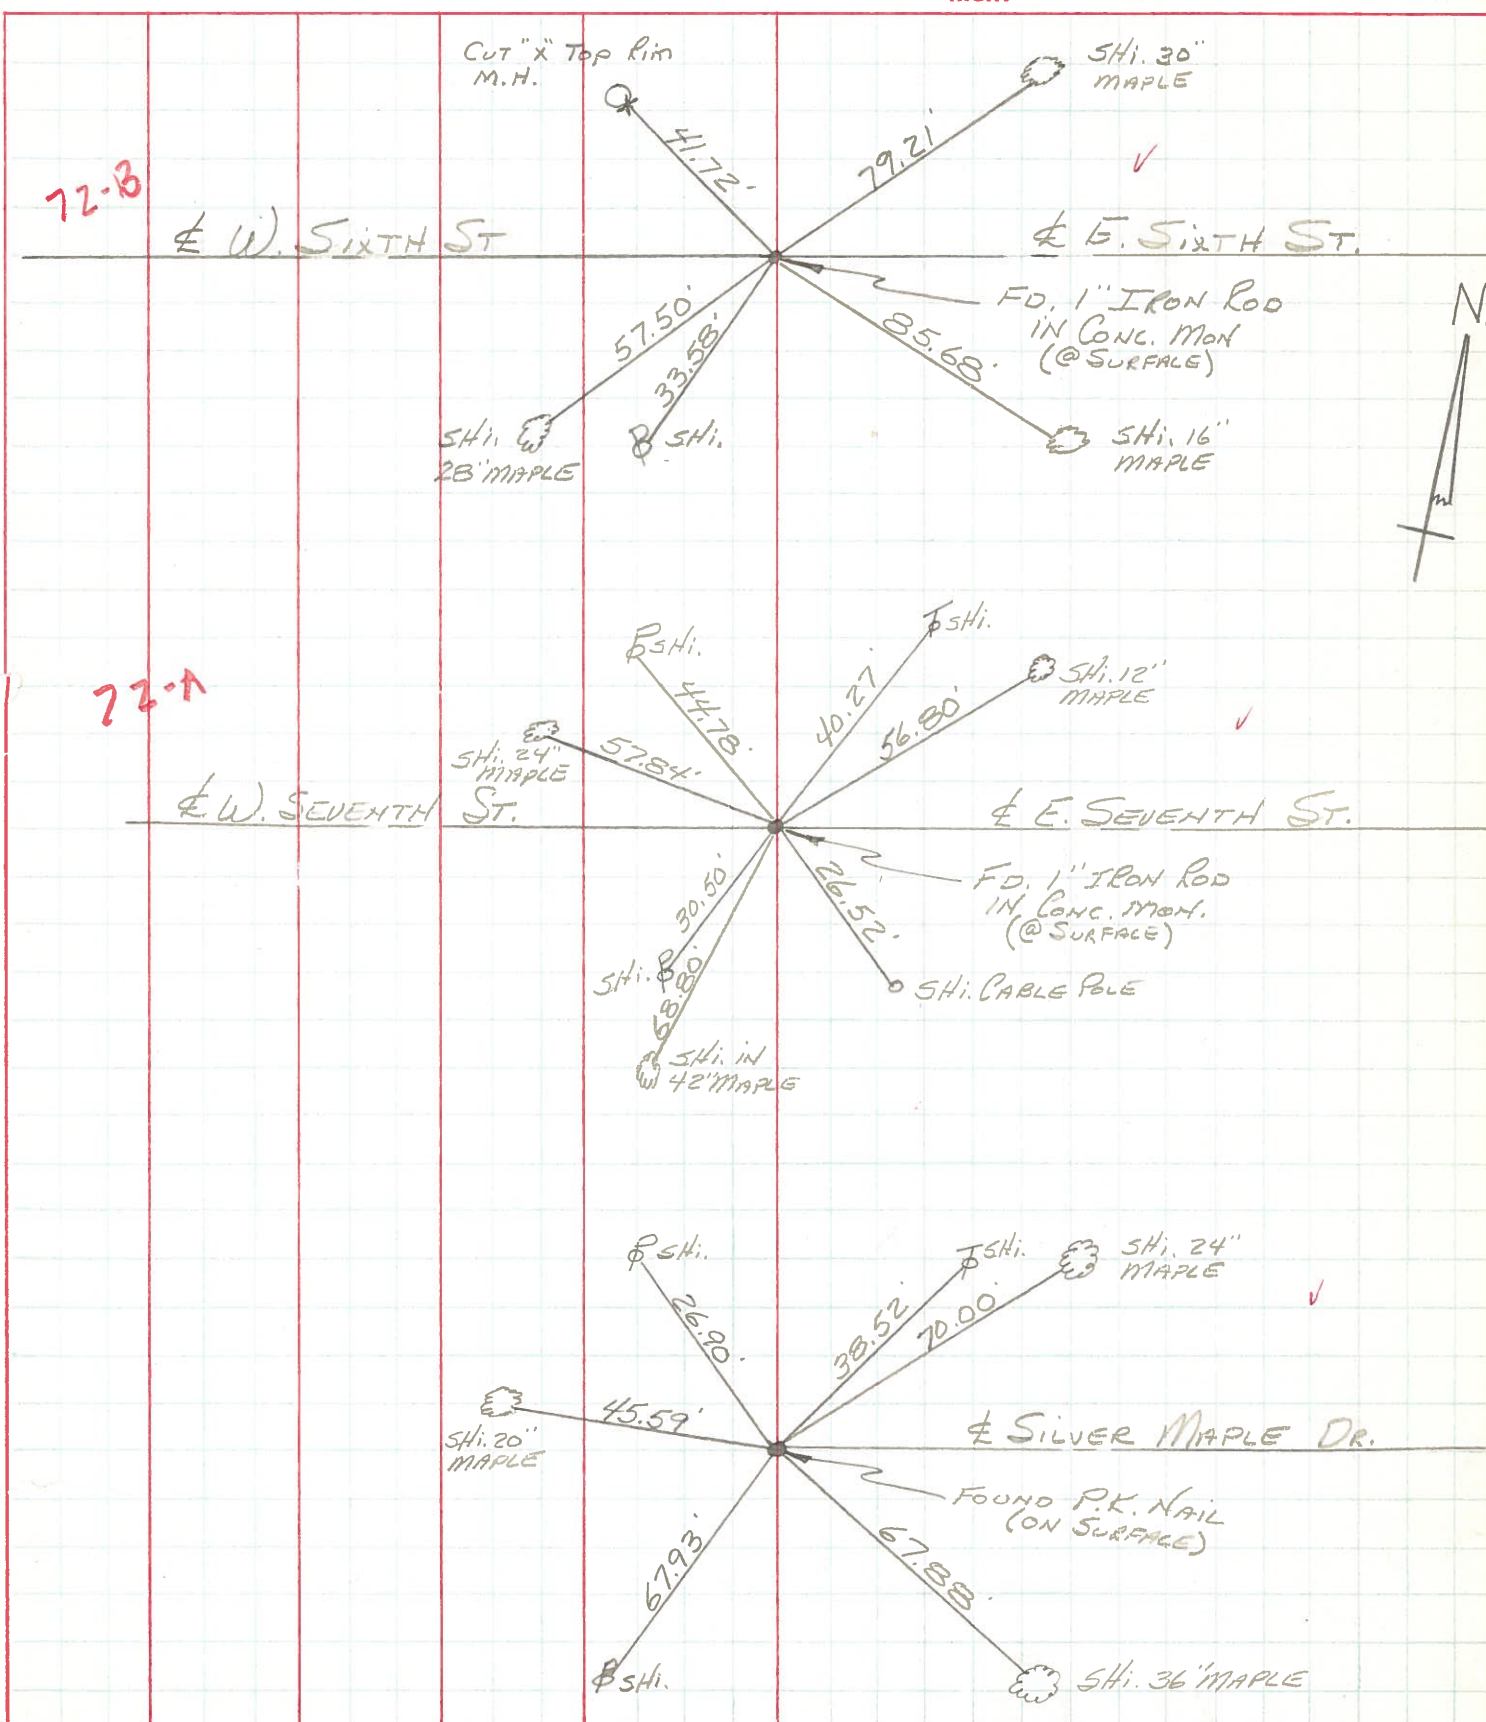 CUT "X" TOP RIM
M.H.
SHi. 30"
MAPLE
41.72'
79.21'
72-B
℄ W. SIXTH ST
℄ E. SIXTH ST.
FD. 1" IRON ROD
IN CONC. MON
(@ SURFACE)
N.
57.50'
33.58'
85.68'
SHi.
28" MAPLE
SHi.
SHi. 16"
MAPLE
SHi.
SHi.
SHi. 12"
MAPLE
72-A
44.78'
40.27'
56.80'
SHi. 24"
MAPLE
57.84'
℄ W. SEVENTH ST.
℄ E. SEVENTH ST.
FD. 1" IRON ROD
IN CONC. MON.
(@ SURFACE)
30.50'
26.52'
SHi.
68.80'
SHi. CABLE POLE
SHi. IN
42" MAPLE
SHi.
SHi.
SHi. 24"
MAPLE
26.90'
38.52'
70.00'
45.59'
SHi. 20"
MAPLE
℄ SILVER MAPLE DR.
FOUND P.K. NAIL
(ON SURFACE)
67.93'
67.88'
SHi.
SHi. 36" MAPLE